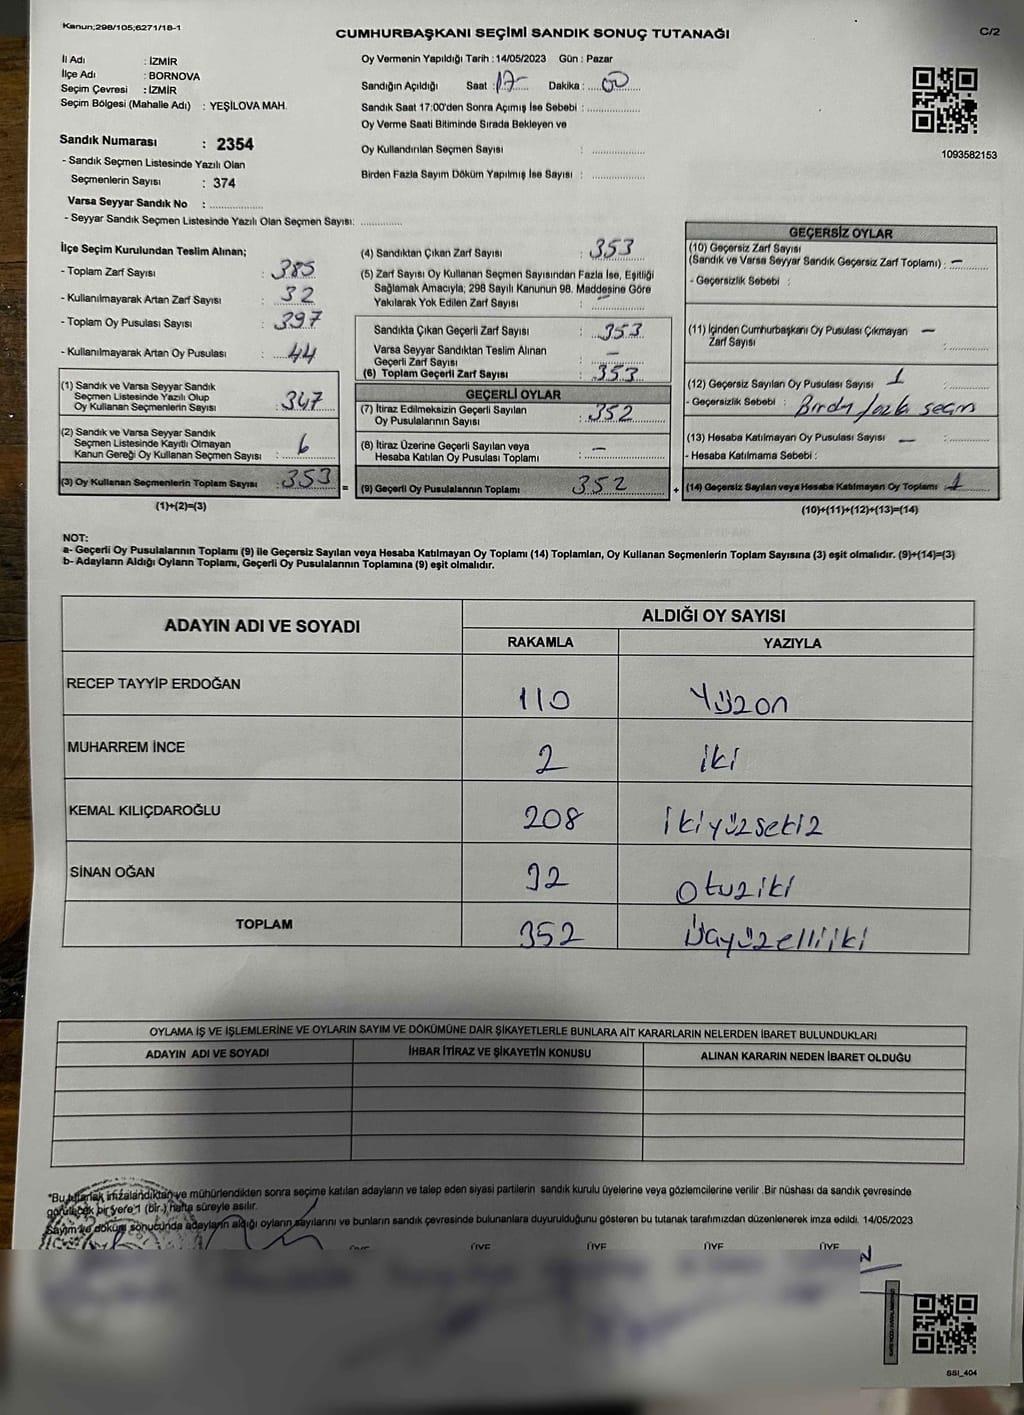 Kanun;298/105;6271/18-1
CUMHURBAŞKANI SEÇİMİ SANDIK SONUÇ TUTANAĞI
C/2
İl Adı : İZMİR
İlçe Adı : BORNOVA
Seçim Çevresi : İZMİR
Seçim Bölgesi (Mahalle Adı) : YEŞİLOVA MAH.
Sandık Numarası : 2354
- Sandık Seçmen Listesinde Yazılı Olan
Seçmenlerin Sayısı : 374
Varsa Seyyar Sandık No : ..............
- Seyyar Sandık Seçmen Listesinde Yazılı Olan Seçmen Sayısı: ..............
Oy Vermenin Yapıldığı Tarih : 14/05/2023 Gün : Pazar
Sandığın Açıldığı Saat : 17 Dakika : 00
Sandık Saat 17:00'den Sonra Açımış İse Sebebi : ..............
Oy Verme Saati Bitiminde Sırada Bekleyen ve
Oy Kullandırılan Seçmen Sayısı : ..............
Birden Fazla Sayım Döküm Yapılmış İse Sayısı : ..............
1093582153
İlçe Seçim Kurulundan Teslim Alınan;
- Toplam Zarf Sayısı : 385
- Kullanılmayarak Artan Zarf Sayısı : 32
- Toplam Oy Pusulası Sayısı : 397
- Kullanılmayarak Artan Oy Pusulası : 44
(1) Sandık ve Varsa Seyyar Sandık
Seçmen Listesinde Yazılı Olup
Oy Kullanan Seçmenlerin Sayısı : 347
(2) Sandık ve Varsa Seyyar Sandık
Seçmen Listesinde Kayıtlı Olmayan
Kanun Gereği Oy Kullanan Seçmen Sayısı : 6
(3) Oy Kullanan Seçmenlerin Toplam Sayısı : 353 =
(1)+(2)=(3)
(4) Sandıktan Çıkan Zarf Sayısı : 353
(5) Zarf Sayısı Oy Kullanan Seçmen Sayısından Fazla İse, Eşitliği
Sağlamak Amacıyla; 298 Sayılı Kanunun 98. Maddesine Göre
Yakılarak Yok Edilen Zarf Sayısı : –
Sandıkta Çıkan Geçerli Zarf Sayısı : 353
Varsa Seyyar Sandıktan Teslim Alınan
Geçerli Zarf Sayısı : –
(6) Toplam Geçerli Zarf Sayısı : 353
GEÇERLİ OYLAR
(7) İtiraz Edilmeksizin Geçerli Sayılan
Oy Pusulalarının Sayısı : 352
(8) İtiraz Üzerine Geçerli Sayılan veya
Hesaba Katılan Oy Pusulası Toplamı : –
(9) Geçerli Oy Pusulalarının Toplamı 352 +
GEÇERSİZ OYLAR
(10) Geçersiz Zarf Sayısı
(Sandık ve Varsa Seyyar Sandık Geçersiz Zarf Toplamı) : –
- Geçersizlik Sebebi :
(11) İçinden Cumhurbaşkanı Oy Pusulası Çıkmayan –
Zarf Sayısı : ..............
(12) Geçersiz Sayılan Oy Pusulası Sayısı 1 : ..............
- Geçersizlik Sebebi : fazla seçim
(13) Hesaba Katılmayan Oy Pusulası Sayısı – : ..............
- Hesaba Katılmama Sebebi :
(14) Geçersiz Sayılan veya Hesaba Katılmayan Oy Toplamı 1
(10)+(11)+(12)+(13)=(14)
NOT:
a- Geçerli Oy Pusulalarının Toplamı (9) ile Geçersiz Sayılan veya Hesaba Katılmayan Oy Toplamı (14) Toplamları, Oy Kullanan Seçmenlerin Toplam Sayısına (3) eşit olmalıdır. (9)+(14)=(3)
b- Adayların Aldığı Oyların Toplamı, Geçerli Oy Pusulalarının Toplamına (9) eşit olmalıdır.
ADAYIN ADI VE SOYADI
ALDIĞI OY SAYISI
RAKAMLA YAZIYLA
RECEP TAYYİP ERDOĞAN 110 Yüzon
MUHARREM İNCE 2 iki
KEMAL KILIÇDAROĞLU 208 ikiyüzsekiz
SİNAN OĞAN 32 otuziki
TOPLAM 352 üçyüzelliiki
OYLAMA İŞ VE İŞLEMLERİNE VE OYLARIN SAYIM VE DÖKÜMÜNE DAİR ŞİKAYETLERLE BUNLARA AİT KARARLARIN NELERDEN İBARET BULUNDUKLARI
ADAYIN ADI VE SOYADI İHBAR İTİRAZ VE ŞİKAYETİN KONUSU ALINAN KARARIN NEDEN İBARET OLDUĞU
*Bu tutanak imzalandıktan ve mühürlendikten sonra seçime katılan adayların ve talep eden siyasi partilerin sandık kurulu üyelerine veya gözlemcilerine verilir .Bir nüshası da sandık çevresinde
görülecek bir yere 1 (bir ) hafta süreyle asılır.
Sayım ve döküm sonucunda adayların aldığı oyların sayılarını ve bunların sandık çevresinde bulunanlara duyurulduğunu gösteren bu tutanak tarafımızdan düzenlenerek imza edildi. 14/05/2023
ÜYE ÜYE ÜYE ÜYE ÜYE
SSI_404